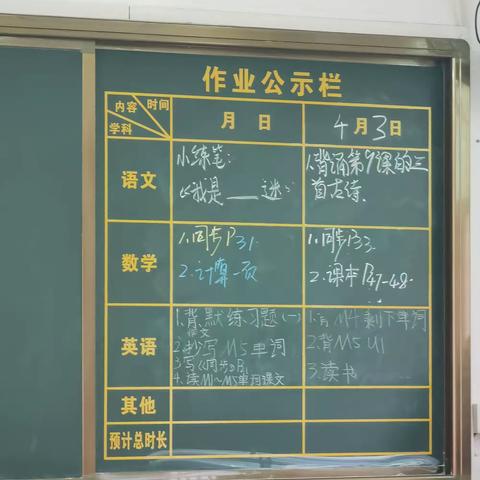 作业公示栏
内容 时间
学科
月 日
4月3日
语文
小练笔:
《我是___迷》
1.背诵第9课的三
首古诗.
数学
1.同步P31.
2.计算一页
1.同步P33.
2.课本P47-48.
英语
1.背、默练习题(一)
课文
2.抄写M5单词
3.写《同步》
4.读M1~M5单词课文
M4剩下单词
2.背M5U1
3.读书
其他
预计总时长